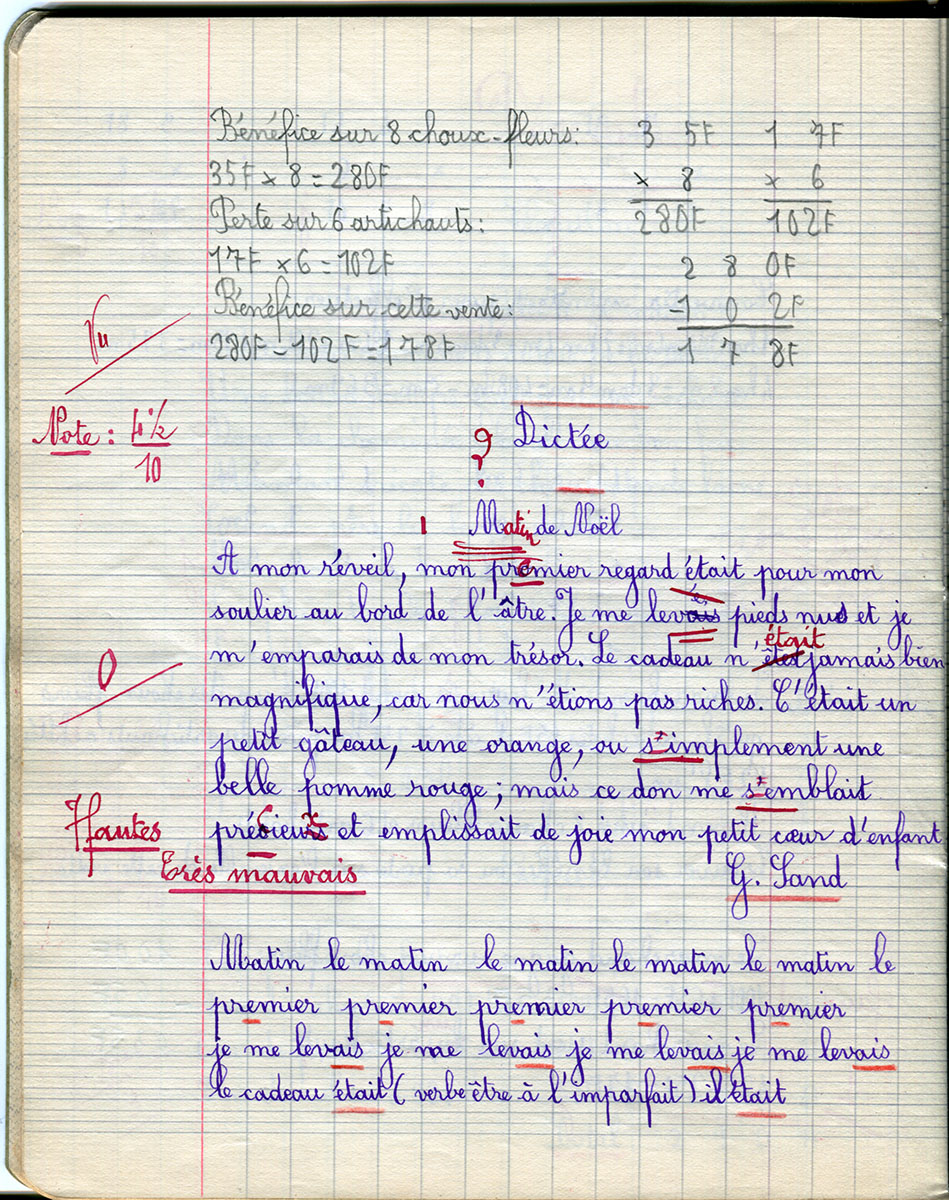 Bénéfice sur 8 choux-fleurs: 3 5F 1 7F
35F × 8 = 280F × 8 × 6
Perte sur 6 artichauts: 280F 102F
17F × 6 = 102F 2 8 0F
Bénéfice sur cette vente: -1 0 2F
280F - 102F = 178F 1 7 8F
Vu
Note : 4 1/2
10
Dictée
?
1 Matin de Noël
A mon réveil, mon premier regard était pour mon
soulier au bord de l'âtre. Je me levais pieds nus et je
était
m'emparais de mon trésor. Le cadeau n' jamais bien
0
magnifique, car nous n'étions pas riches. C'était un
petit gâteau, une orange, ou s'implement une
belle pomme rouge ; mais ce don me s'emblait
précieux et emplissait de joie mon petit cœur d'enfant
7 fautes
Très mauvais
G. Sand
Matin le matin le matin le matin le matin le
premier premier premier premier premier
je me levais je me levais je me levais je me levais
le cadeau était ( verbe être à l'imparfait ) il était